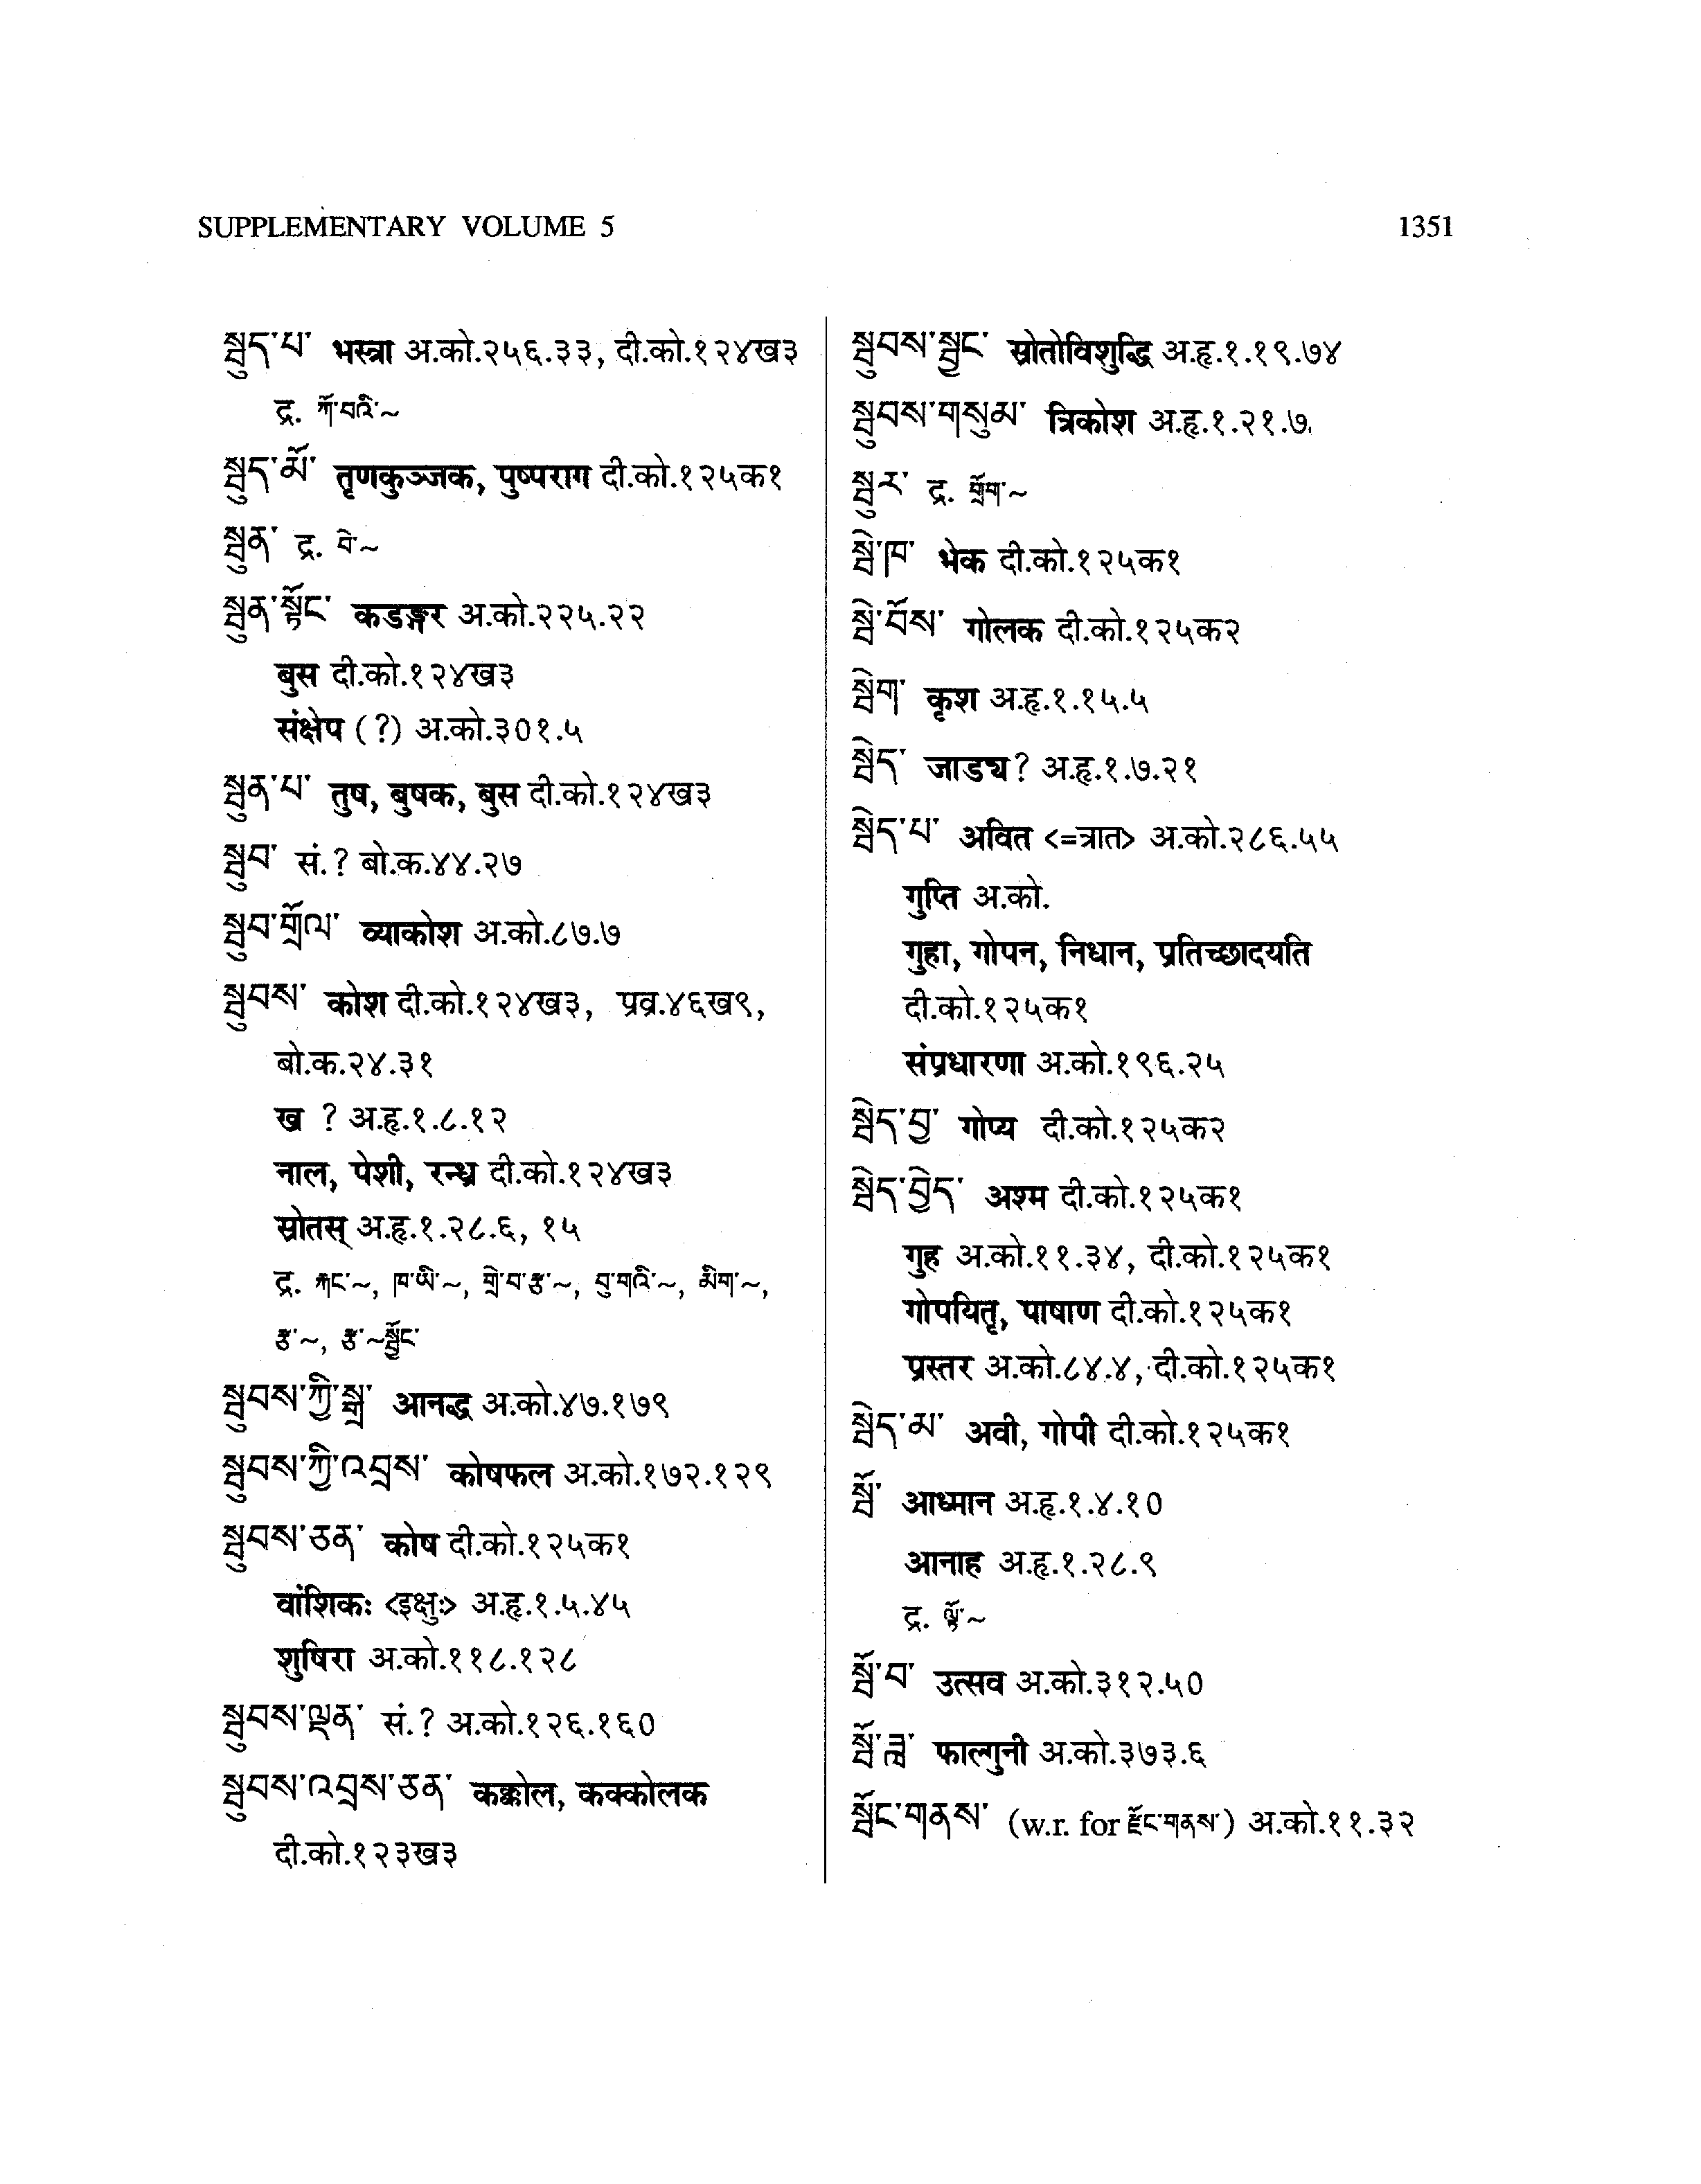 SUPPLEMENTARY VOLUME 5 1351
སྦུད་པ་ भस्त्रा अ.को.२५६.३३, दी.को.१२४ख३
द्र. ཀོ་བའི་~
སྦུད་མོ་ तृणकुञ्जक, पुष्पराग दी.को.१२५क१
སྦུན་ द्र. བེ་~
སྦུན་སྟོང་ कडङ्गर अ.को.२२५.२२
बुस दी.को.१२४ख३
संक्षेप (?) अ.को.३०१.५
སྦུན་པ་ तुष, बुषक, बुस दी.को.१२४ख३
སྦུབ་ सं.? बो.क.४४.२७
སྦུབ་གྲོལ་ व्याकोश अ.को.८७.७
སྦུབས་ कोश दी.को.१२४ख३, प्रव्र.४६ख९,
बो.क.२४.३१
ख ? अ.हृ.१.८.१२
नाल, पेशी, रन्ध्र दी.को.१२४ख३
स्रोतस् अ.हृ.१.२८.६, १५
द्र. རྐང་~, ཁ་ཡི་~, གྲེ་བ་རྩ་~, བུ་གའི་~, མིག་~,
རྩ་~, རྩ་~སྦྱོང་
སྦུབས་ཀྱི་སྒྲ་ आनद्ध अ.को.४७.१७९
སྦུབས་ཀྱི་འབྲས་ कोषफल अ.को.१७२.१२९
སྦུབས་ཅན་ कोष दी.को.१२५क१
वांशिकः <इक्षुः> अ.हृ.१.५.४५
शुषिरा अ.को.११८.१२८
སྦུབས་ལྡན་ सं.? अ.को.१२६.१६०
སྦུབས་འབྲས་ཅན་ कक्कोल, कक्कोलक
दी.को.१२३ख३
སྦུབས་སྦྱང་ स्रोतोविशुद्धि अ.हृ.१.१९.७४
སྦུབས་གསུམ་ त्रिकोश अ.हृ.१.२१.७
སྦུར་ द्र. གྲོག་~
སྦེ་ཁ་ भेक दी.को.१२५क१
སྦེ་བོས་ गोलक दी.को.१२५क२
སྦེག་ कृश अ.हृ.१.१५.५
སྦེད་ जाड्य? अ.हृ.१.७.२१
སྦེད་པ་ अवित <=त्रात> अ.को.२८६.५५
गुप्ति अ.को.
गुहा, गोपन, निधान, प्रतिच्छादयति
दी.को.१२५क१
संप्रधारणा अ.को.१९६.२५
སྦེད་བྱ་ गोप्य दी.को.१२५क२
སྦེད་བྱེད་ अश्म दी.को.१२५क१
गुह अ.को.११.३४, दी.को.१२५क१
गोपयितृ, पाषाण दी.को.१२५क१
प्रस्तर अ.को.८४.४, दी.को.१२५क१
སྦེད་མ་ अवी, गोपी दी.को.१२५क१
སྦོ་ आध्मान अ.हृ.१.४.१०
आनाह अ.हृ.१.२८.९
द्र. ལྟོ་~
སྦོ་བ་ उत्सव अ.को.३१२.५०
སྦོ་ཟླ་ फाल्गुनी अ.को.३७३.६
སྦོང་གནས་ (w.r. for རྫོང་གནས་) अ.को.११.३२